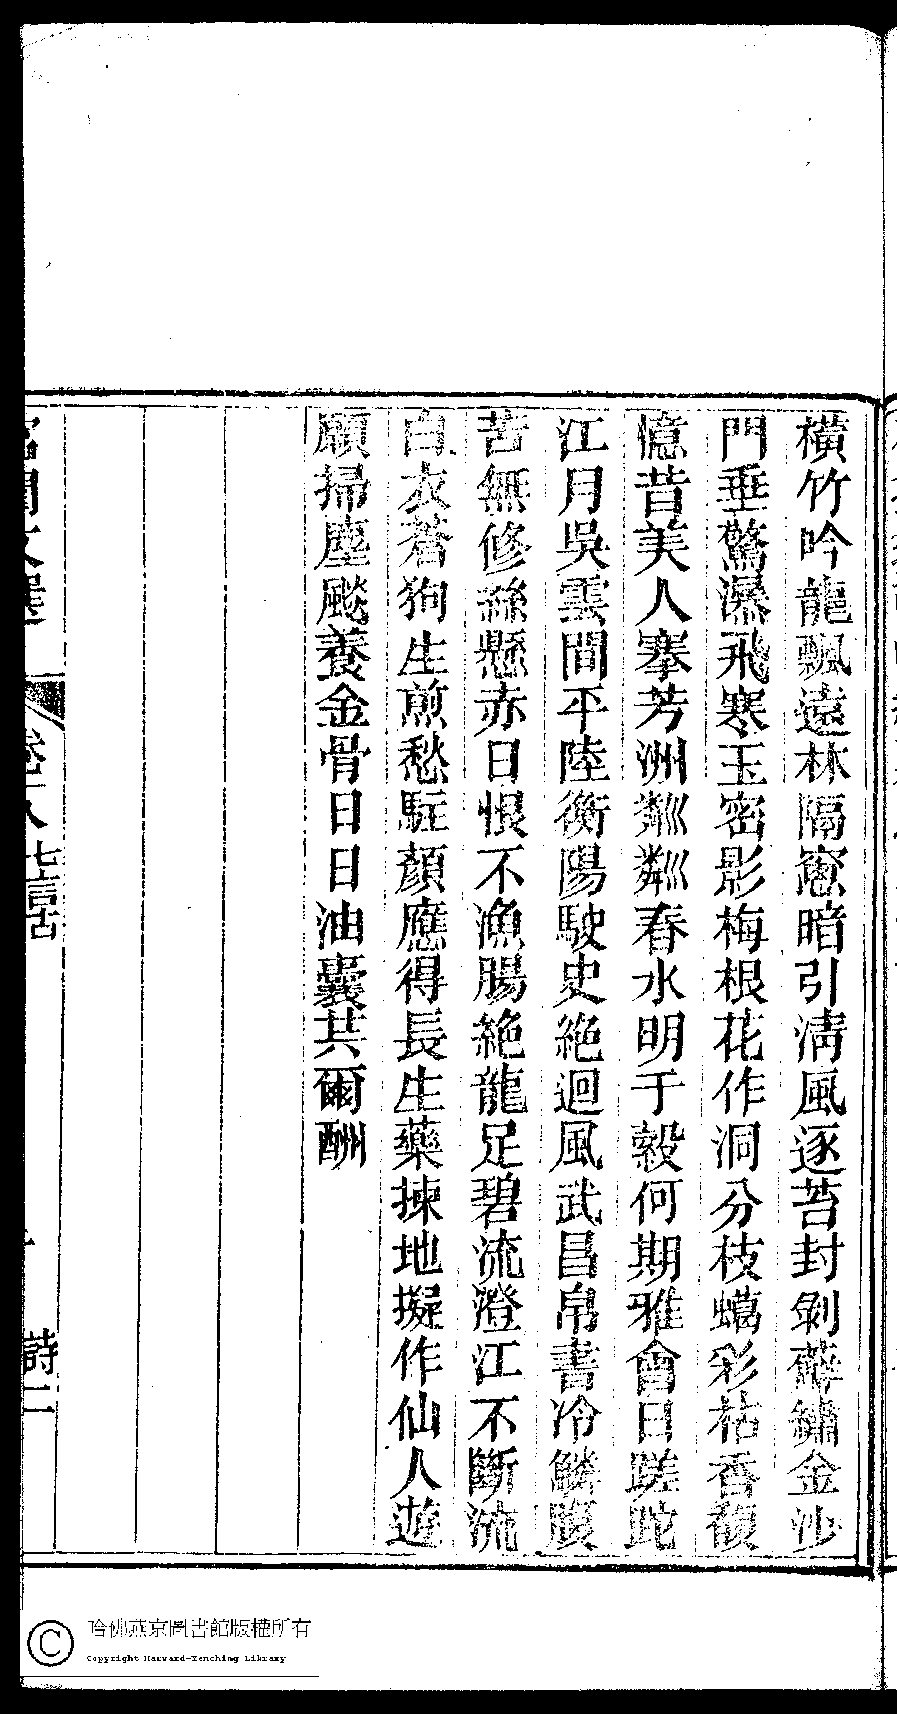 橫竹吟龍飄遠林隔窓暗引清風逐苔封剝蘚鏽金沙
門垂驚瀑飛寒玉密影梅根花作洞分枝蠟彩枯香馥
憶昔美人搴芳洲粼粼春水明于縠何期雅會日蹉跎
江月吳雲間平陸衡陽駛史絶迴風武昌帛書冷鱗腹
苦無修絲懸赤日恨不漁腸絶龍足碧流澄江不斷流
白衣蒼狗生煎愁駐顏應得長生藥揀地擬作仙人遊
願掃塵颷養金骨日日油囊共爾酬
宮閨文選
卷十八 七言古
詩二
哈佛燕京圖書館版權所有
Copyright Harvard-Yenching Library